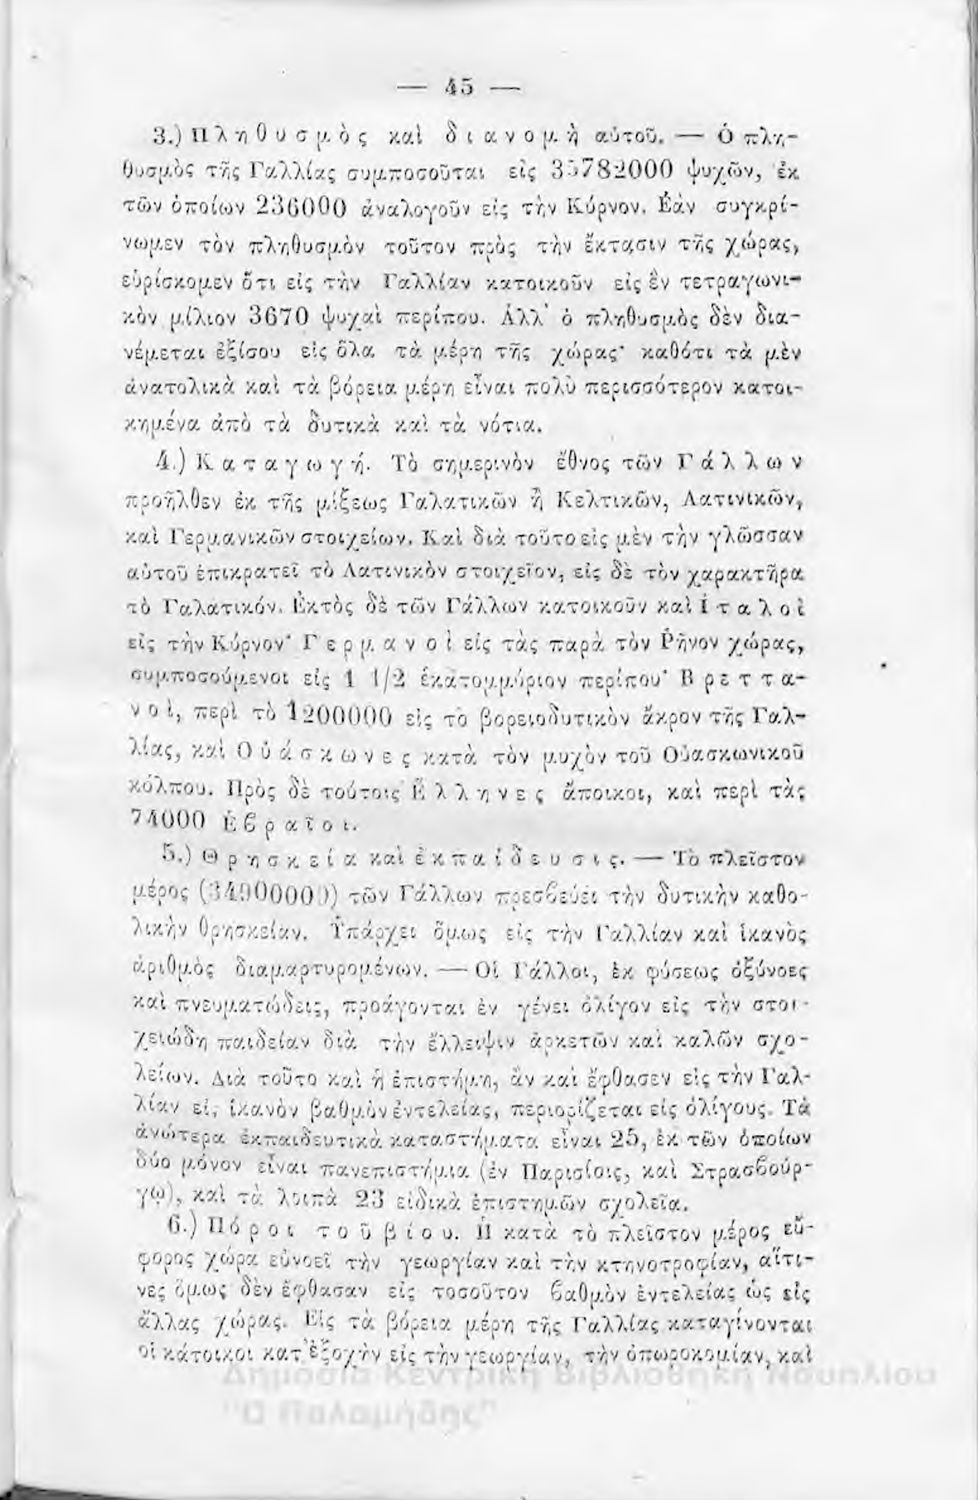 — 45 —
3.) Πληθυσμὸς καὶ διανομὴ αὐτοῦ. — Ὁ πλη-
θυσμὸς τῆς Γαλλίας συμποσοῦται εἰς 35782000 ψυχῶν, ἐκ
τῶν ὁποίων 236000 ἀναλογοῦν εἰς τὴν Κύρνον. Ἐὰν συγκρί-
νωμεν τὸν πληθυσμὸν τοῦτον πρὸς τὴν ἔκτασιν τῆς χώρας,
εὑρίσκομεν ὅτι εἰς τὴν Γαλλίαν κατοικοῦν εἰς ἓν τετραγωνι-
κὸν μίλιον 3670 ψυχαὶ περίπου. Ἀλλ' ὁ πληθυσμὸς δὲν δια-
νέμεται ἐξίσου εἰς ὅλα τὰ μέρη τῆς χώρας· καθότι τὰ μὲν
ἀνατολικὰ καὶ τὰ βόρεια μέρη εἶναι πολὺ περισσότερον κατοι-
κημένα ἀπὸ τὰ δυτικὰ καὶ τὰ νότια.
4.) Καταγωγή. Τὸ σημερινὸν ἔθνος τῶν Γάλλων
προῆλθεν ἐκ τῆς μίξεως Γαλατικῶν ἢ Κελτικῶν, Λατινικῶν,
καὶ Γερμανικῶν στοιχείων. Καὶ διὰ τοῦτο εἰς μὲν τὴν γλῶσσαν
αὐτοῦ ἐπικρατεῖ τὸ Λατινικὸν στοιχεῖον, εἰς δὲ τὸν χαρακτῆρα
τὸ Γαλατικόν. Ἐκτὸς δὲ τῶν Γάλλων κατοικοῦν καὶ Ἰταλοὶ
εἰς τὴν Κύρνον· Γερμανοὶ εἰς τὰς παρὰ τὸν Ῥῆνον χώρας,
συμποσούμενοι εἰς 1 1/2 ἑκατομμύριον περίπου· Βρεττα-
νοὶ, περὶ τὸ 1200000 εἰς τὸ βορειοδυτικὸν ἄκρον τῆς Γαλ-
λίας, καὶ Οὐάσκωνες κατὰ τὸν μυχὸν τοῦ Οὐασκωνικοῦ
κόλπου. Πρὸς δὲ τούτοις Ἕλληνες ἄποικοι, καὶ περὶ τὰς
74000 Ἑβραῖοι.
5.) Θρησκεία καὶ ἐκπαίδευσις. — Τὸ πλεῖστον
μέρος (34900000) τῶν Γάλλων πρεσβεύει τὴν δυτικὴν καθο-
λικὴν θρησκείαν. Ὑπάρχει ὅμως εἰς τὴν Γαλλίαν καὶ ἱκανὸς
ἀριθμὸς διαμαρτυρομένων. — Οἱ Γάλλοι, ἐκ φύσεως ὀξύνοες
καὶ πνευματώδεις, προάγονται ἐν γένει ὀλίγον εἰς τὴν στοι-
χειώδη παιδείαν διὰ τὴν ἔλλειψιν ἀρκετῶν καὶ καλῶν σχο-
λείων. Διὰ τοῦτο καὶ ἡ ἐπιστήμη, ἂν καὶ ἔφθασεν εἰς τὴν Γαλ-
λίαν εἰς ἱκανὸν βαθμὸν ἐντελείας, περιορίζεται εἰς ὀλίγους. Τὰ
ἀνώτερα ἐκπαιδευτικὰ καταστήματα εἶναι 25, ἐκ τῶν ὁποίων
δύο μόνον εἶναι πανεπιστήμια (ἐν Παρισίοις, καὶ Στρασβούρ-
γῳ), καὶ τὰ λοιπὰ 23 εἰδικὰ ἐπιστημῶν σχολεῖα.
6.) Πόροι τοῦ βίου. Ἡ κατὰ τὸ πλεῖστον μέρος εὔ-
φορος χώρα εὐνοεῖ τὴν γεωργίαν καὶ τὴν κτηνοτροφίαν, αἵτι-
νες ὅμως δὲν ἔφθασαν εἰς τοσοῦτον βαθμὸν ἐντελείας ὡς εἰς
ἄλλας χώρας. Εἰς τὰ βόρεια μέρη τῆς Γαλλίας καταγίνονται
οἱ κάτοικοι κατ' ἐξοχὴν εἰς τὴν γεωργίαν, τὴν ὀπωροκομίαν, καὶ
Δημόσια Κεντρική Βιβλιοθήκη Ναυπλίου
"Ο Παλαμήδης"